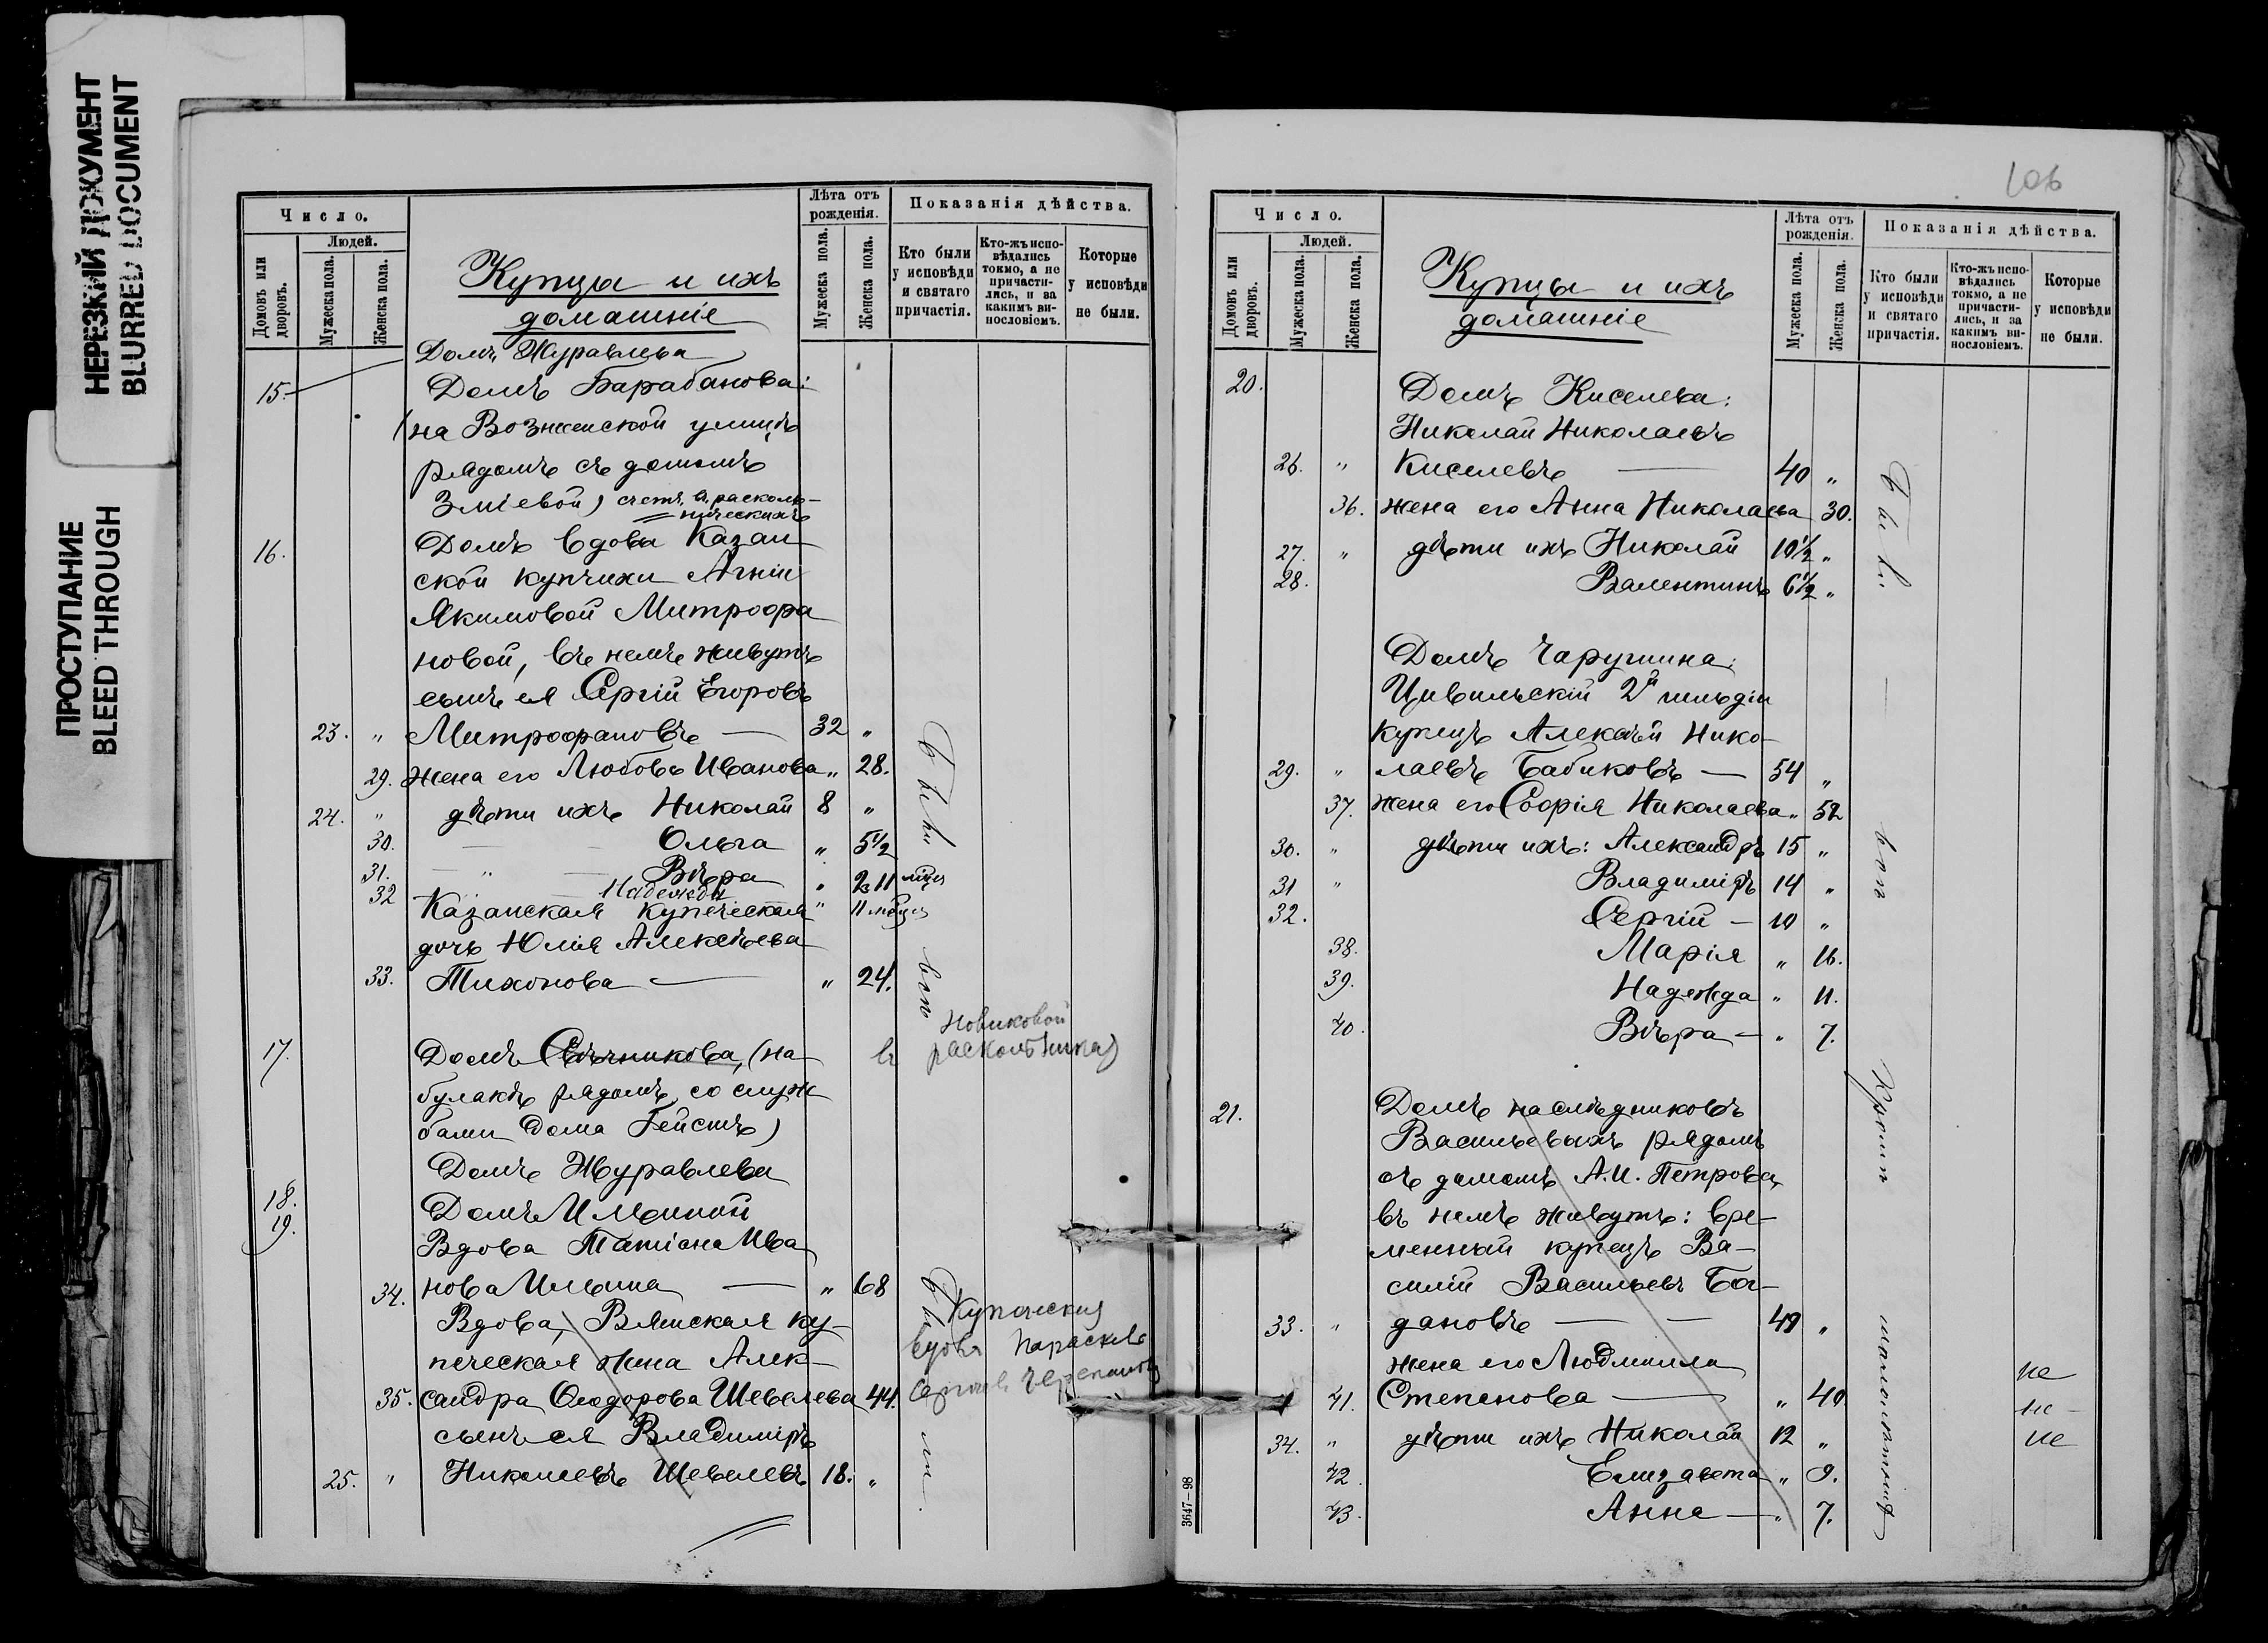 НЕРЕЗКИЙ ДОКУМЕНТ
BLURRED DOCUMENT
ПРОСТУПАНИЕ
BLEED THROUGH
Число.
Людей.
Домовъ или дворовъ.
Мужеска пола.
Женска пола.
Купцы и ихъ
домашніе
Лѣта отъ
рожденія.
Мужеска пола.
Женска пола.
Показанія дѣйства.
Кто были
у исповѣди
и святаго
причастія.
Кто-жъ испо-
вѣдались
токмо, а не
причасти-
лись, и за
какимъ ви-
нословіемъ.
Которые
у исповѣди
не были.
Домъ Журавлева
15. Домъ Барабанова:
(на Вознесенской улицѣ
рядомъ съ домомъ
Зміевой) счит. въ расколь-
ническихъ
16. Домъ вдовы Казан
ской купчихи Агніи
Якимовой Митрофа
новой, въ немъ живутъ
сынъ ея Сергій Егоровъ
23. " Митрофановъ — 32 "
29. жена его Любовь Иванова " 28.
24. " дѣти ихъ Николай 8 "
30. Ольга " 5 1/2
31. " Вѣра " 2 11 мѣс
32 Надежда
Казанская купеческая " 11 мѣс
дочь Юлія Алексѣева
33. Тихонова — " 24.
Были
Новиковой
17. Домъ Свѣчникова, (на въ раскольникахъ)
булакѣ рядомъ со служ
бами дома Гейстъ)
Домъ Журавлева
18. Домъ Ильиной
19. Вдова Татіана Ива
34. нова Ильина — " 68
Вдова, Вятская ку-
печеская жена Алек-
35. сандра Ѳеодорова Шевелева 44.
сынъ ея Владиміръ
25. " Николаевъ Шевелевъ 18. "
Купеческая
вдова Параскева
Черепанова
106
Число.
Людей.
Домовъ или дворовъ.
Мужеска пола.
Женска пола.
Купцы и ихъ
домашніе
Лѣта отъ
рожденія.
Мужеска пола.
Женска пола.
Показанія дѣйства.
Кто были
у исповѣди
и святаго
причастія.
Кто-жъ испо-
вѣдались
токмо, а не
причасти-
лись, и за
какимъ ви-
нословіемъ.
Которые
у исповѣди
не были.
20. Домъ Киселева:
Николай Николаевъ
26. " Киселевъ — 40 "
36. жена его Анна Николаева 30.
27. " дѣти ихъ Николай 10 1/2 "
28. Валентинъ 6 1/2 "
Были
Домъ Чарушина:
Цивильскій 2й гильдіи
купецъ Алексѣй Нико-
29. " лаевъ Бабиковъ — 54 "
37. жена его Софія Николаева " 52
30. " дѣти ихъ: Александръ 15 "
31 " Владиміръ 14 "
32. Сергій — 10 "
38. Марія " 16.
39. Надежда " 11.
40. Вѣра — " 7.
Кромѣ
21. Домъ наслѣдниковъ
Васильевыхъ рядомъ
съ домомъ А. И. Петрова,
въ немъ живутъ: вре-
менный купецъ Ва-
силій Васильевъ Бог-
33. " дановъ — — 49 "
жена его Людмила
41. Степанова — " 40
34. " дѣти ихъ Николай 12 "
42. Елизавета " 9.
43. Анна — " 7.
малолѣтнихъ
не
не
не
3647—98